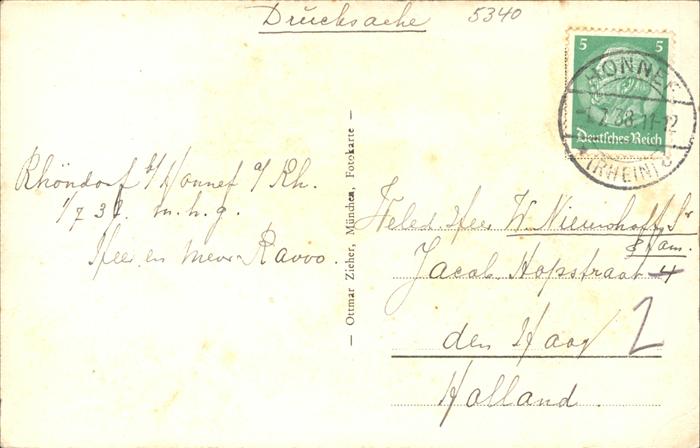 Drucksache 5340
5 5
HONNEF
-1.7.38.11-12
(RHEIN) c
Deutsches Reich
Rhöndorf b/Honnef a/Rh.
1/7 38. m.h.g.
Heer en Mevr Ravoo.
— Ottmar Zieher, München, Fotokarte —
Weled. Heer W. Nieuwhoff Sr
& fam.
Jacob Hopstraat 4
den Haag 2
Holland.